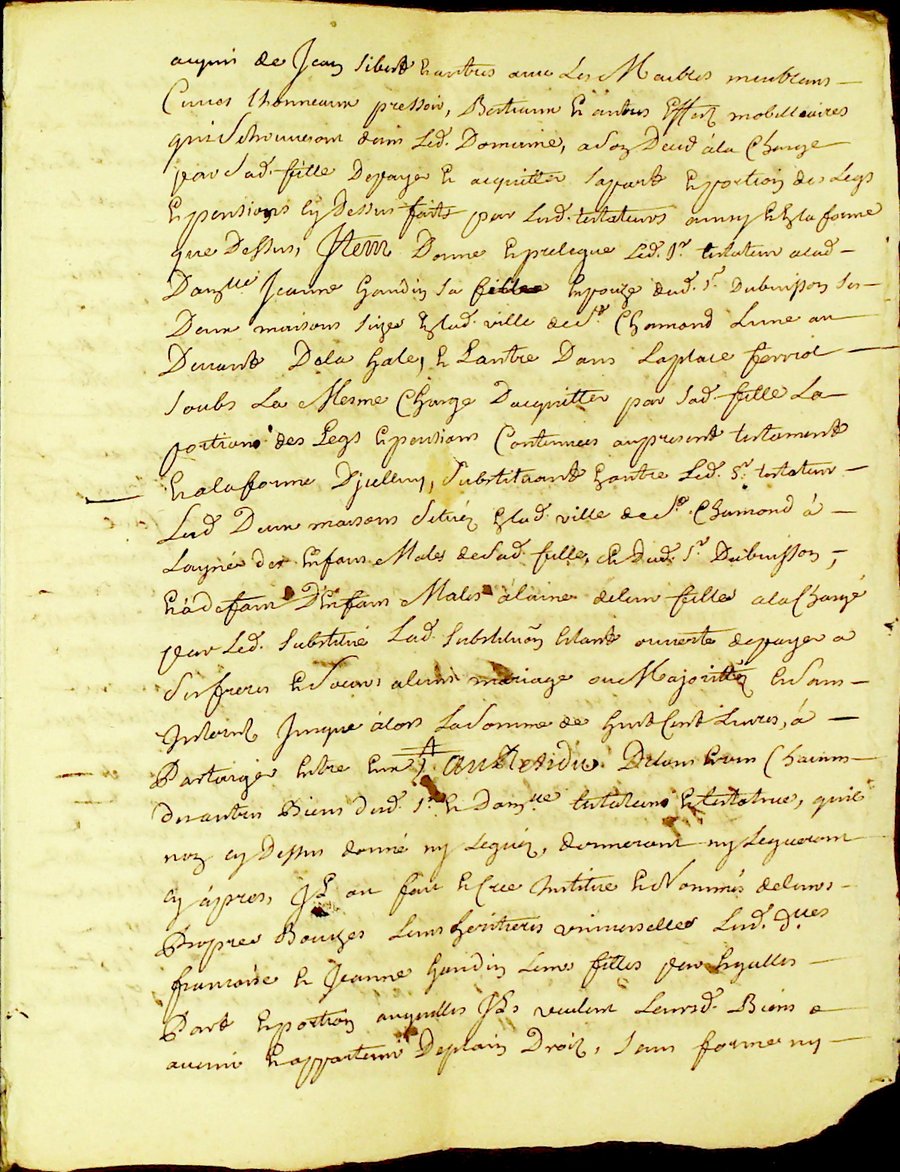 acquis de Jean Sibert & autres avec Les Maitres meublans
Cuves thonneaux pressoir, Bestiaux & autres Effets mobilliaires
qui Setrouveront dans Led. Domaine, aSon Deced àla Charge
par Sad. fille Depayer & acquitter Sapart &portion des Legs
&pensions cy Dessus faits par Lesd. testateurs ainsy & Enla forme
que Dessus, Item Donne &prelegue Led. Sr. testateur alad.
Damlle Jeanne Gaudin Sa fille Epouze dud. Sr. Dubuisson Ses
Deux maisons Sizes Enlad. ville deSt. Chamond Lune au
Devant Dela hale, & Lautre Dans Laplace ferriol
Soubs La Mesme Charge Dacquitter par Sad. fille La
portion des Legs &pensions Contenues aupresent testament
&alaforme Dicelluy, Substituant Enoutre Led. Sr. testateur
Lesd. Deux maisons Situées Enlad. ville deSt. Chamond à
Laynée des Enfans Males deSad. fille, & Dud. Sr. Dubuisson,
&àdefaut D'Enfans Males àlainée deleur filles alaCharge
par Led. Substitué Lad. Substituõn Estant ouverte depayer a
Ses freres &Soeurs aleurs mariage ouMajorittés &Sans
Interest Jusque àlors LaSomme de huit Cent Livres, à
Partager Entre Eux Aurésidu Detous & uns Chacuns
Desautres Biens desd. Sr. & Damlle testateur &testatrice, quils
nont cy Dessus donné ny Legués, donneront ny Legueront
cy àpres, Ils ont fait & Cree Institue &Nommés deleurs
Propres Bouches Leurs heritieres universelles Lesd. Dlles
francoise & Jeanne Gaudin Leurs filles par Egalles
Part &portion auxquelles Ils veulent Leursd. Biens
avenir &appartenir Deplain Droit, Sans forme ny